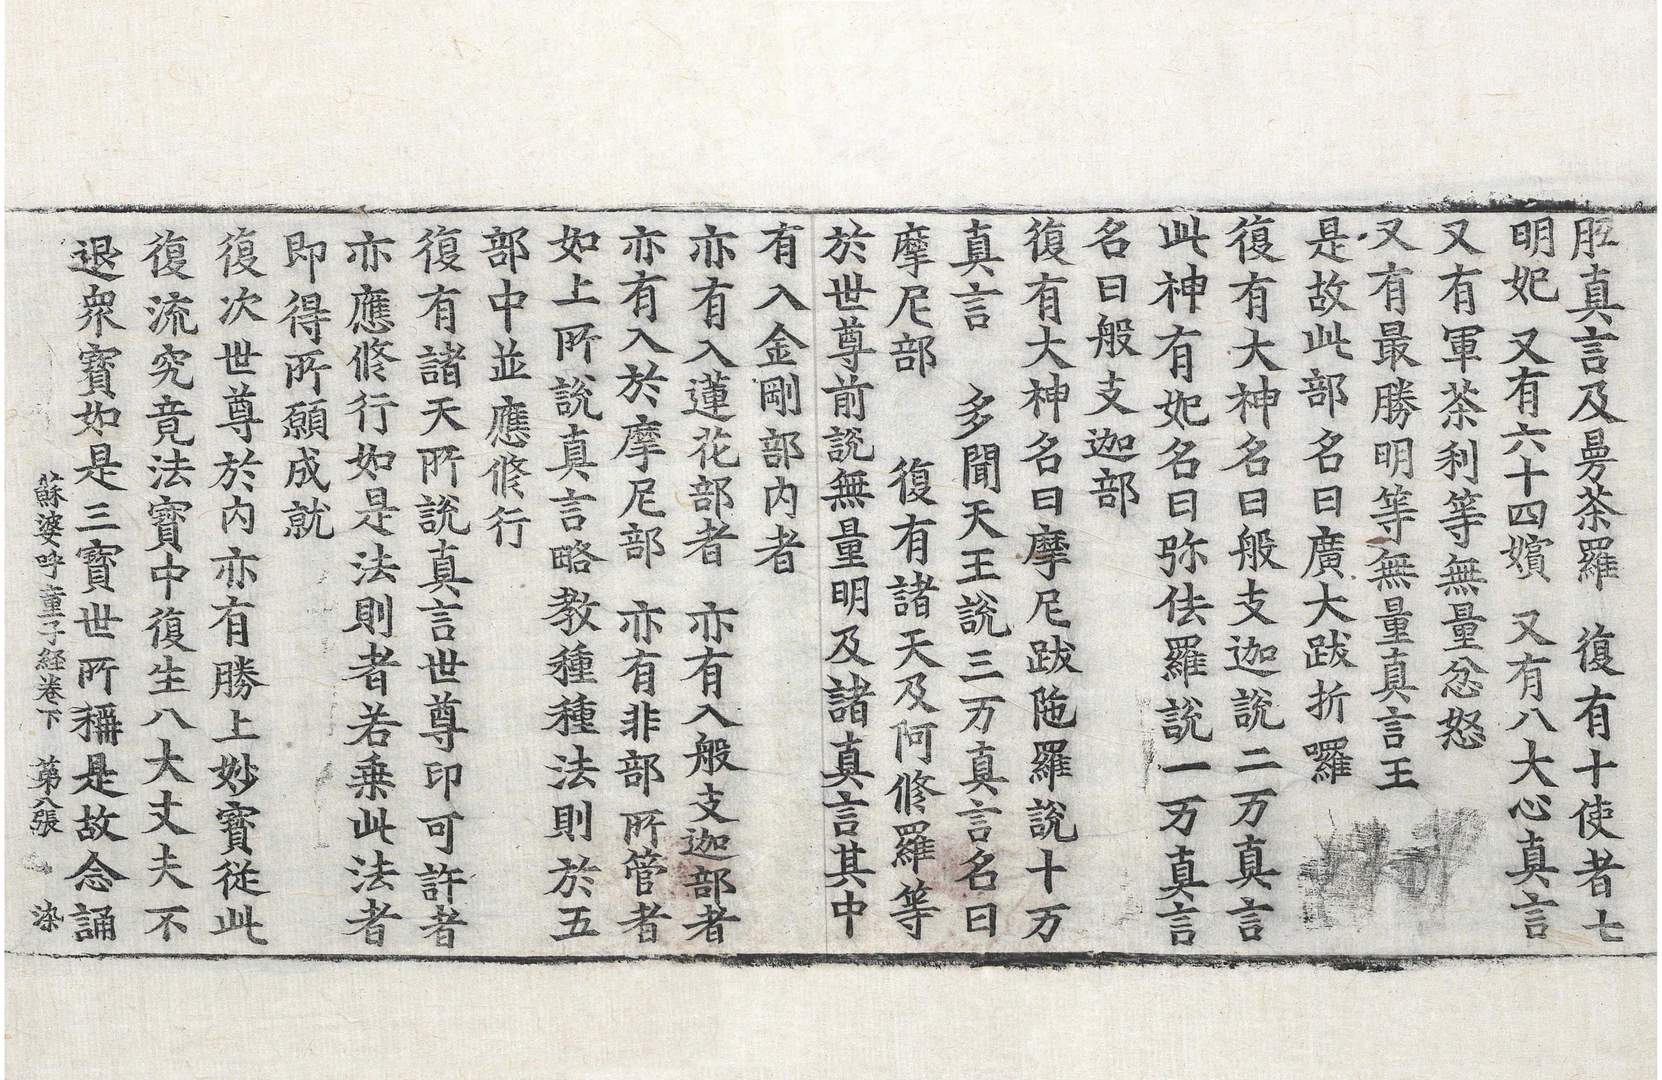 胝真言及曼茶羅　復有十使者七
明妃　又有六十四嬪　又有八大心真言
又有軍茶利等無量忿怒
又有最勝明等無量真言王
是故此部名曰廣大跋折囉
復有大神名曰般支迦說二万真言
此神有妃名曰弥佉羅說一万真言
名曰般支迦部
復有大神名曰摩尼跋陁羅說十万
真言　多聞天王說三万真言名曰
摩尼部　復有諸天及阿修羅等
於世尊前說無量明及諸真言其中
有入金剛部內者
亦有入蓮花部者　亦有入般支迦部者
亦有入於摩尼部　亦有非部所管者
如上所說真言略教種種法則於五
部中並應修行
復有諸天所說真言世尊印可許者
亦應修行如是法則者若乗此法者
即得所願成就
復次世尊於內亦有勝上妙寳從此
復流究竟法寳中復生八大丈夫不
退衆寳如是三寳世所稱是故念誦
蘇婆呼童子経卷下　第八張　染